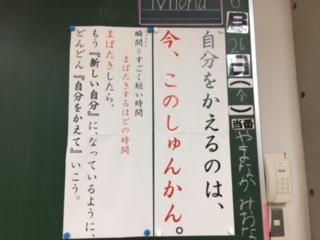 Miona
6
月
26
日
(金)
当番
やまなか みおな
自分をかえるのは、
今、このしゅんかん。
瞬間＝すごく短い時間
まばたきするほどの時間
まばたきしたら、
もう『新しい自分』に、なっているように、
どんどん『自分をかえて』いこう。